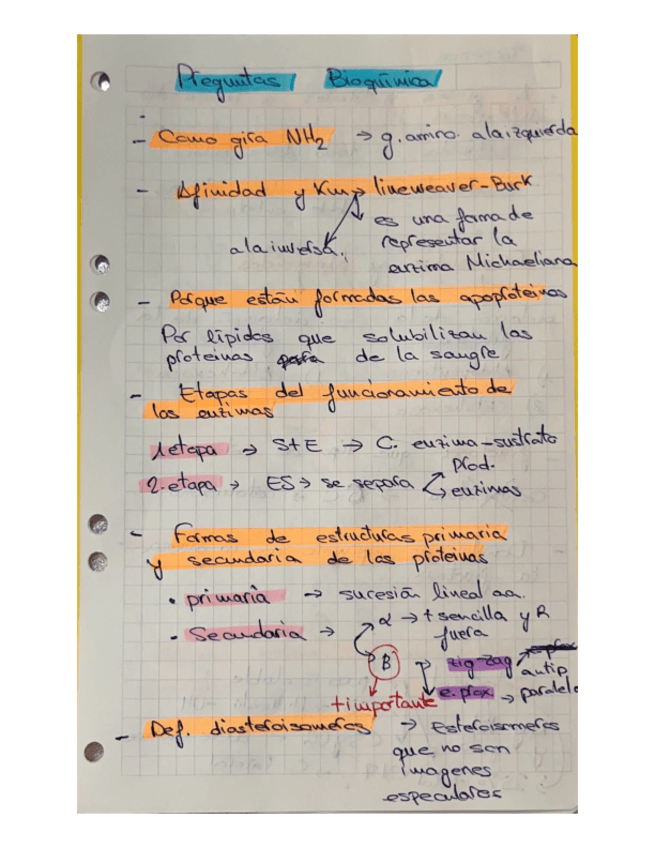 Preguntas Bioquímica
- Como gira NH2 → g. amino. a la izquierda
- Afinidad y Km → lineweaver-Burk
es una forma de
a la inversa, representar la
enzima Michaeliana
- Porque están formadas las apoproteinas
Por lípidos que solubilizan las
proteinas de la sangre
- Etapas del funcionamiento de
las enzimas
1 etapa → S+E → C. enzima-sustrato
2. etapa → ES → se separa prod.
enzimas
- Formas de estructuras primaria
y secundaria de las proteinas
• primaria → sucesión lineal aa.
• Secundaria → α → + sencilla y R
fuera
B → zig-zag → antip
+ importante e. plax → paralelo
- Def. diasteroisomeros → Esteroisomeros
que no son
imagenes
especulares